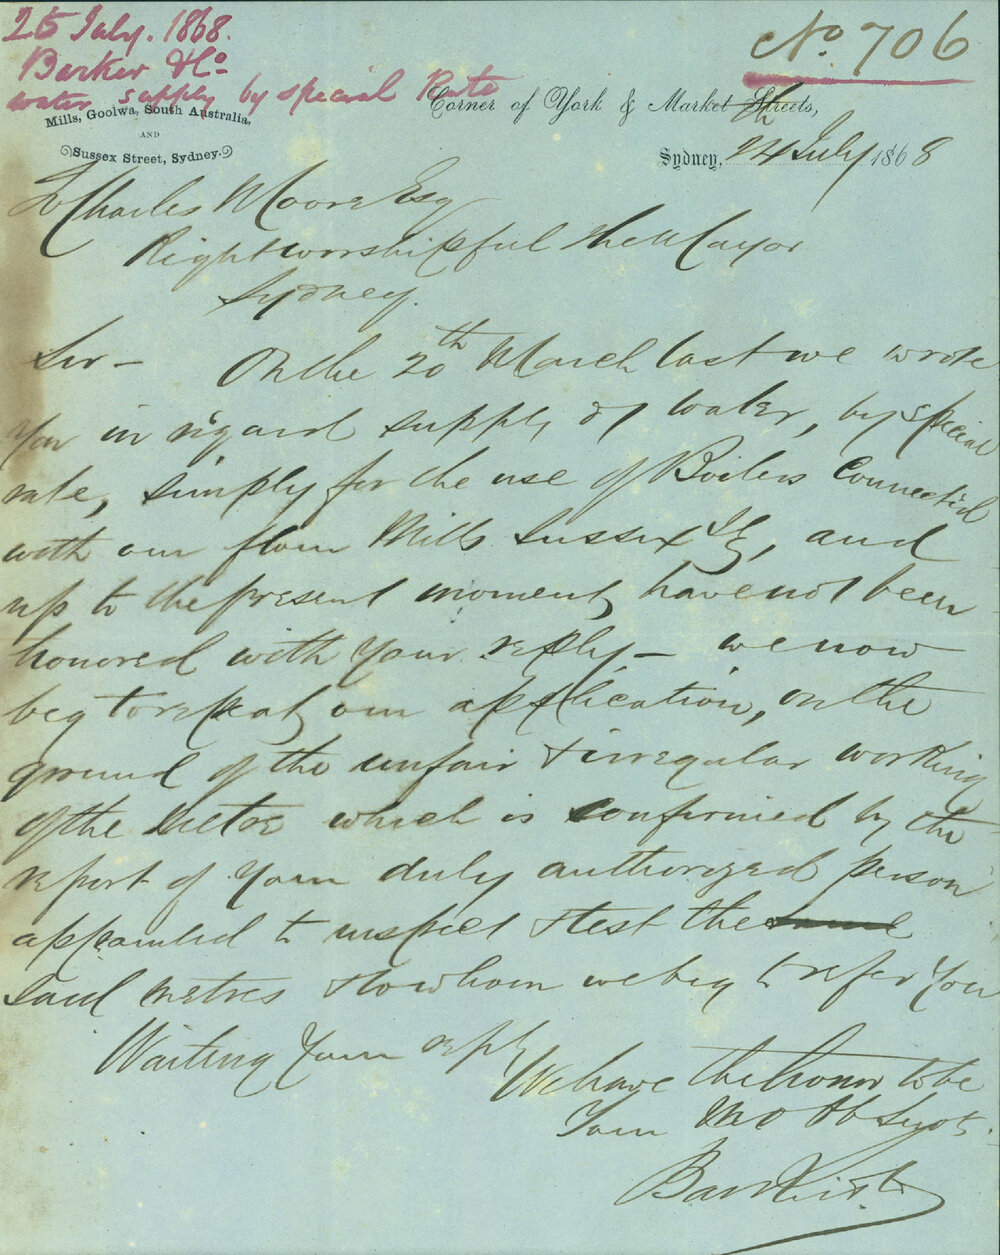 25 July. 1868.
Barker & Co
water supply by special Rate
No. 706
Mills, Goolwa, South Australia,
AND
Sussex Street, Sydney.
Corner of York & Market Streets,
Sydney, 24th July 1868
To Charles Moore Esq
Right worshipful the Mayor
Sydney.
Sir - On the 20th March last we wrote
You in regard supply of water, by special
rate, simply for the use of Boilers Connected
with our flour Mills Sussex St, and
up to the present moment, have not been
honored with Your reply - we now
beg to repeat our application, on the
ground of the unfair & irregular working
of the metre which is confirmed by the
report of Your duly authorized person
appointed to inspect & test the same
said metres & to whom we beg to refer You
Waiting Your reply
We have the honor to be
Your Mo Ob Servts.
Barker & Co